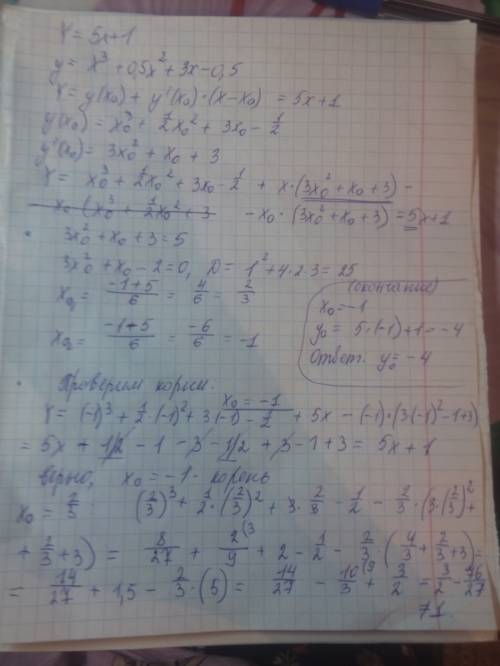 Y = 5x+1
y = x³ + 0,5x² + 3x - 0,5
Y = y(x₀) + y'(x₀)·(x-x₀) = 5x+1
y(x₀) = x₀³ + ½x₀² + 3x₀ - ½
y'(x₀) = 3x₀² + x₀ + 3
Y = x₀³ + ½x₀² + 3x₀ - ½ + x·(3x₀² + x₀ + 3) -
- x₀·(3x₀² + x₀ + 3) = 5x+1
3x₀² + x₀ + 3 = 5
3x₀² + x₀ - 2 = 0, D = 1² + 4·2·3 = 25
x₀₁ = (-1+5)/6 = 4/6 = 2/3
x₀₂ = (-1-5)/6 = -6/6 = -1
(окончание)
x₀ = -1
y₀ = 5·(-1)+1 = -4
Ответ: y₀ = -4
Проверим корни.
x₀ = -1
Y = (-1)³ + ½·(-1)² + 3(-1) - ½ + 5x - (-1)·(3(-1)²-1+3)
= 5x + 1/2 - 1 - 3 - 1/2 + 3 - 1 + 3 = 5x + 1
верно, x₀ = -1 - корень
x₀ = 2/3 (2/3)³ + ½·(2/3)² + 3·2/3 - ½ - 2/3·(3·(2/3)² +
+ 2/3 + 3) = 8/27 + 2/9 (3 + 2 - ½ - 2/3·(4/3 + 2/3 + 3) =
= 14/27 + 1,5 - 2/3·(5) = 14/27 - 10/3 (9 + 3/2 = 3/2 - 76/27
≠1